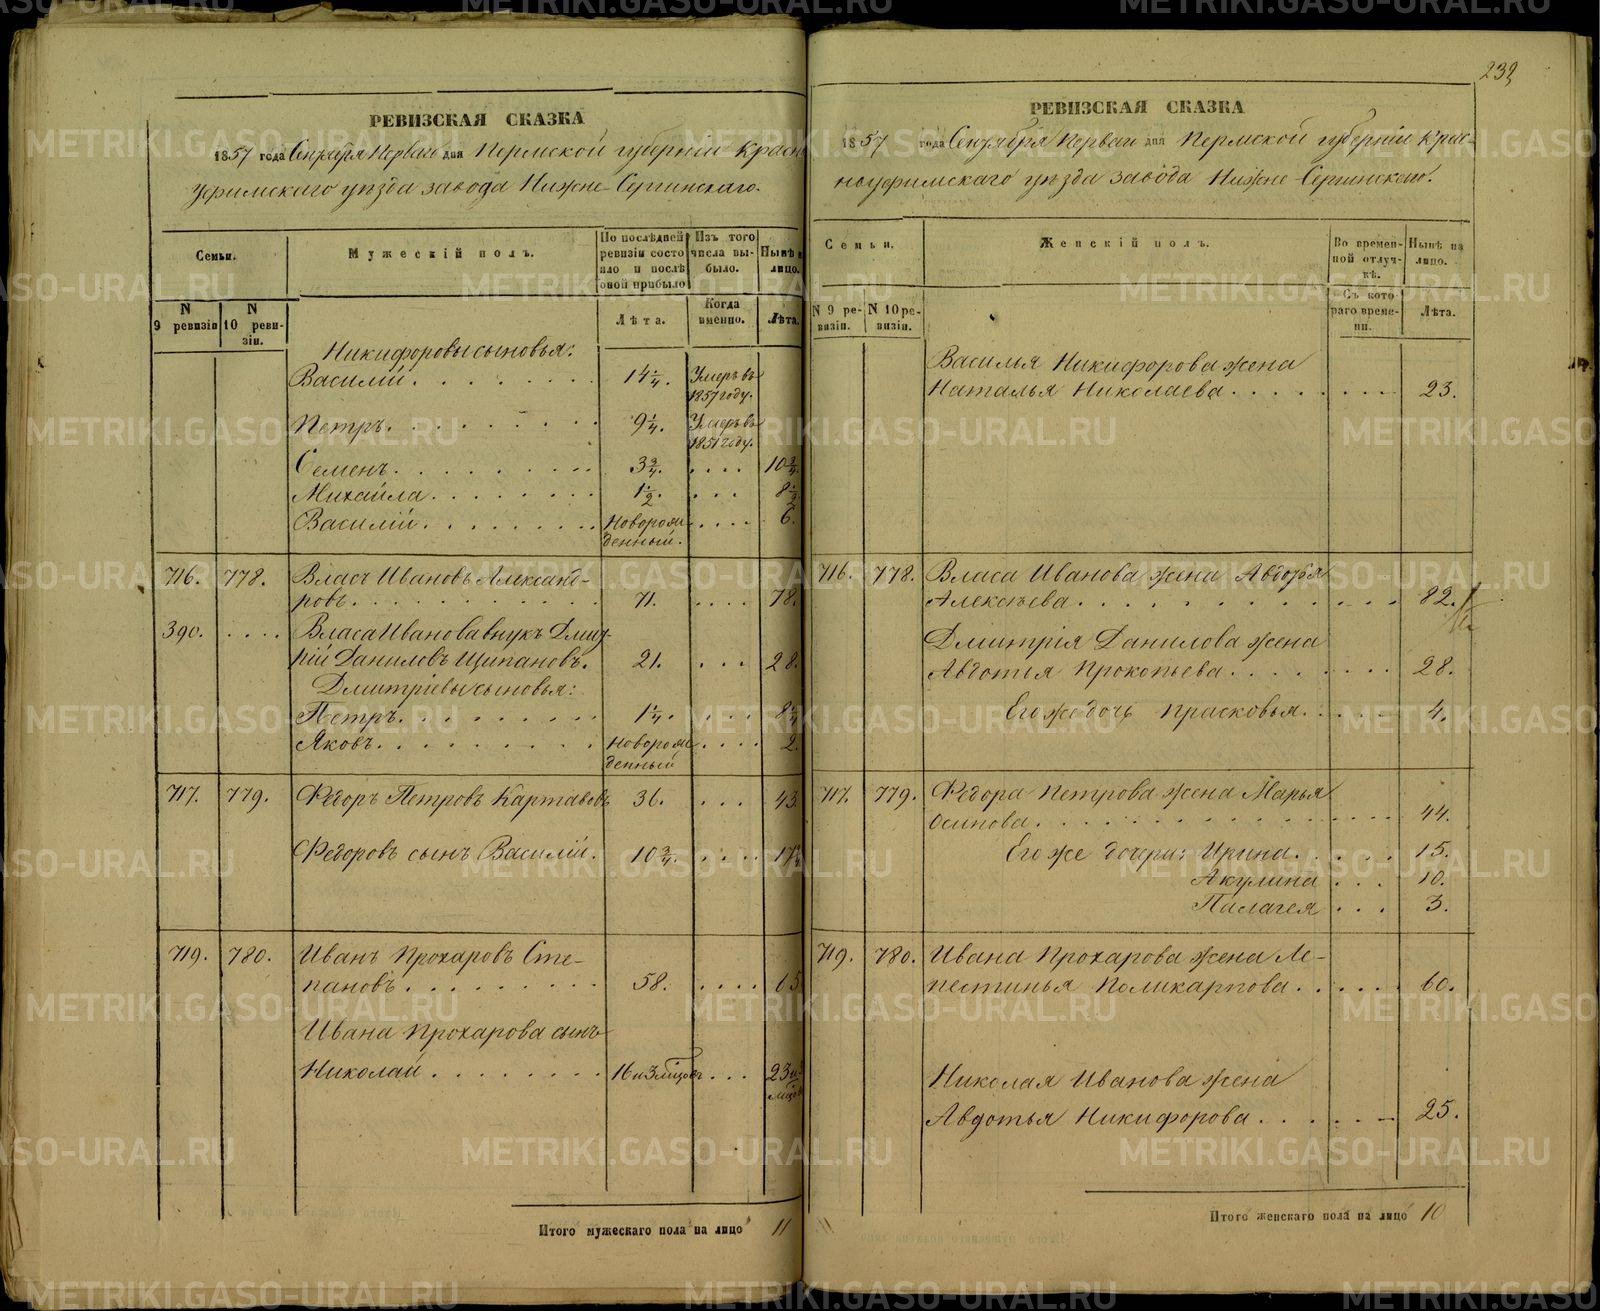 РЕВИЗСКАЯ СКАЗКА
1857 года Сентября Перваго дня Пермской губерніи Красн-
уфимскаго уѣзда завода Нижне-Сергинскаго.
Семьи.
Мужескій полъ.
По послѣдней ревизіи состояло и послѣ оной прибыло
Изъ того числа выбыло.
Нынѣ на лицо.
N 9 ревизіи
N 10 ревизіи.
Лѣта.
Когда именно.
Лѣта.
Никифоровы сыновья:
Василій. 14 1/4. Умеръ въ 1857 году.
Петръ. 9 1/4. Умеръ въ 1851 году.
Семенъ. 3 3/4. 10 3/4.
Михайла. 1 1/2. 8 1/2
Василій. Новорожденный. 6.
716. 778. Власъ Ивановъ Александ-
ровъ. 71. 78.
390. Власа Иванова внукъ Дмит-
рій Даниловъ Щипановъ. 21. 28.
Дмитріевы сыновья:
Петръ. 1 1/4. 8 1/4
Яковъ. Новорожденный 2.
717. 779. Ѳедоръ Петровъ Картавовъ 36. 43.
Ѳедоровъ сынъ Василій. 10 3/4. 17 3/4
719. 780. Иванъ Прохаровъ Сте-
пановъ. 58. 65
Ивана Прохарова сынъ
Николай. 16 и 3 мѣсяцовъ 23 и 3 мѣсяц
Итого мужескаго пола на лицо 11
232
РЕВИЗСКАЯ СКАЗКА
1857 года Сентября Перваго дня Пермской губерніи Крас-
ноуфимскаго уѣзда завода Нижне-Сергинскаго.
Семьи.
Женскій полъ.
Во временной отлучкѣ.
Нынѣ на лицо.
N 9 ревизіи.
N 10 ревизіи.
Съ котораго времени.
Лѣта.
Василья Никифорова жена
Наталья Николаева. 23.
716. 778. Власа Иванова жена Авдотья
Алексѣева. 82.
Дмитрія Данилова жена
Авдотья Прокопьева. 28.
Его же дочь Прасковья. 4.
717. 779. Ѳедора Петрова жена Марья
Осипова. 44.
Его же дочери: Ирина. 15.
Акулина 10.
Палагея 3.
719. 780. Ивана Прохарова жена Ле-
пестинья Поликарпова. 60.
Николая Иванова жена
Авдотья Никифорова. 25.
Итого женскаго пола на лицо 10
METRIKI.GASO-URAL.RU